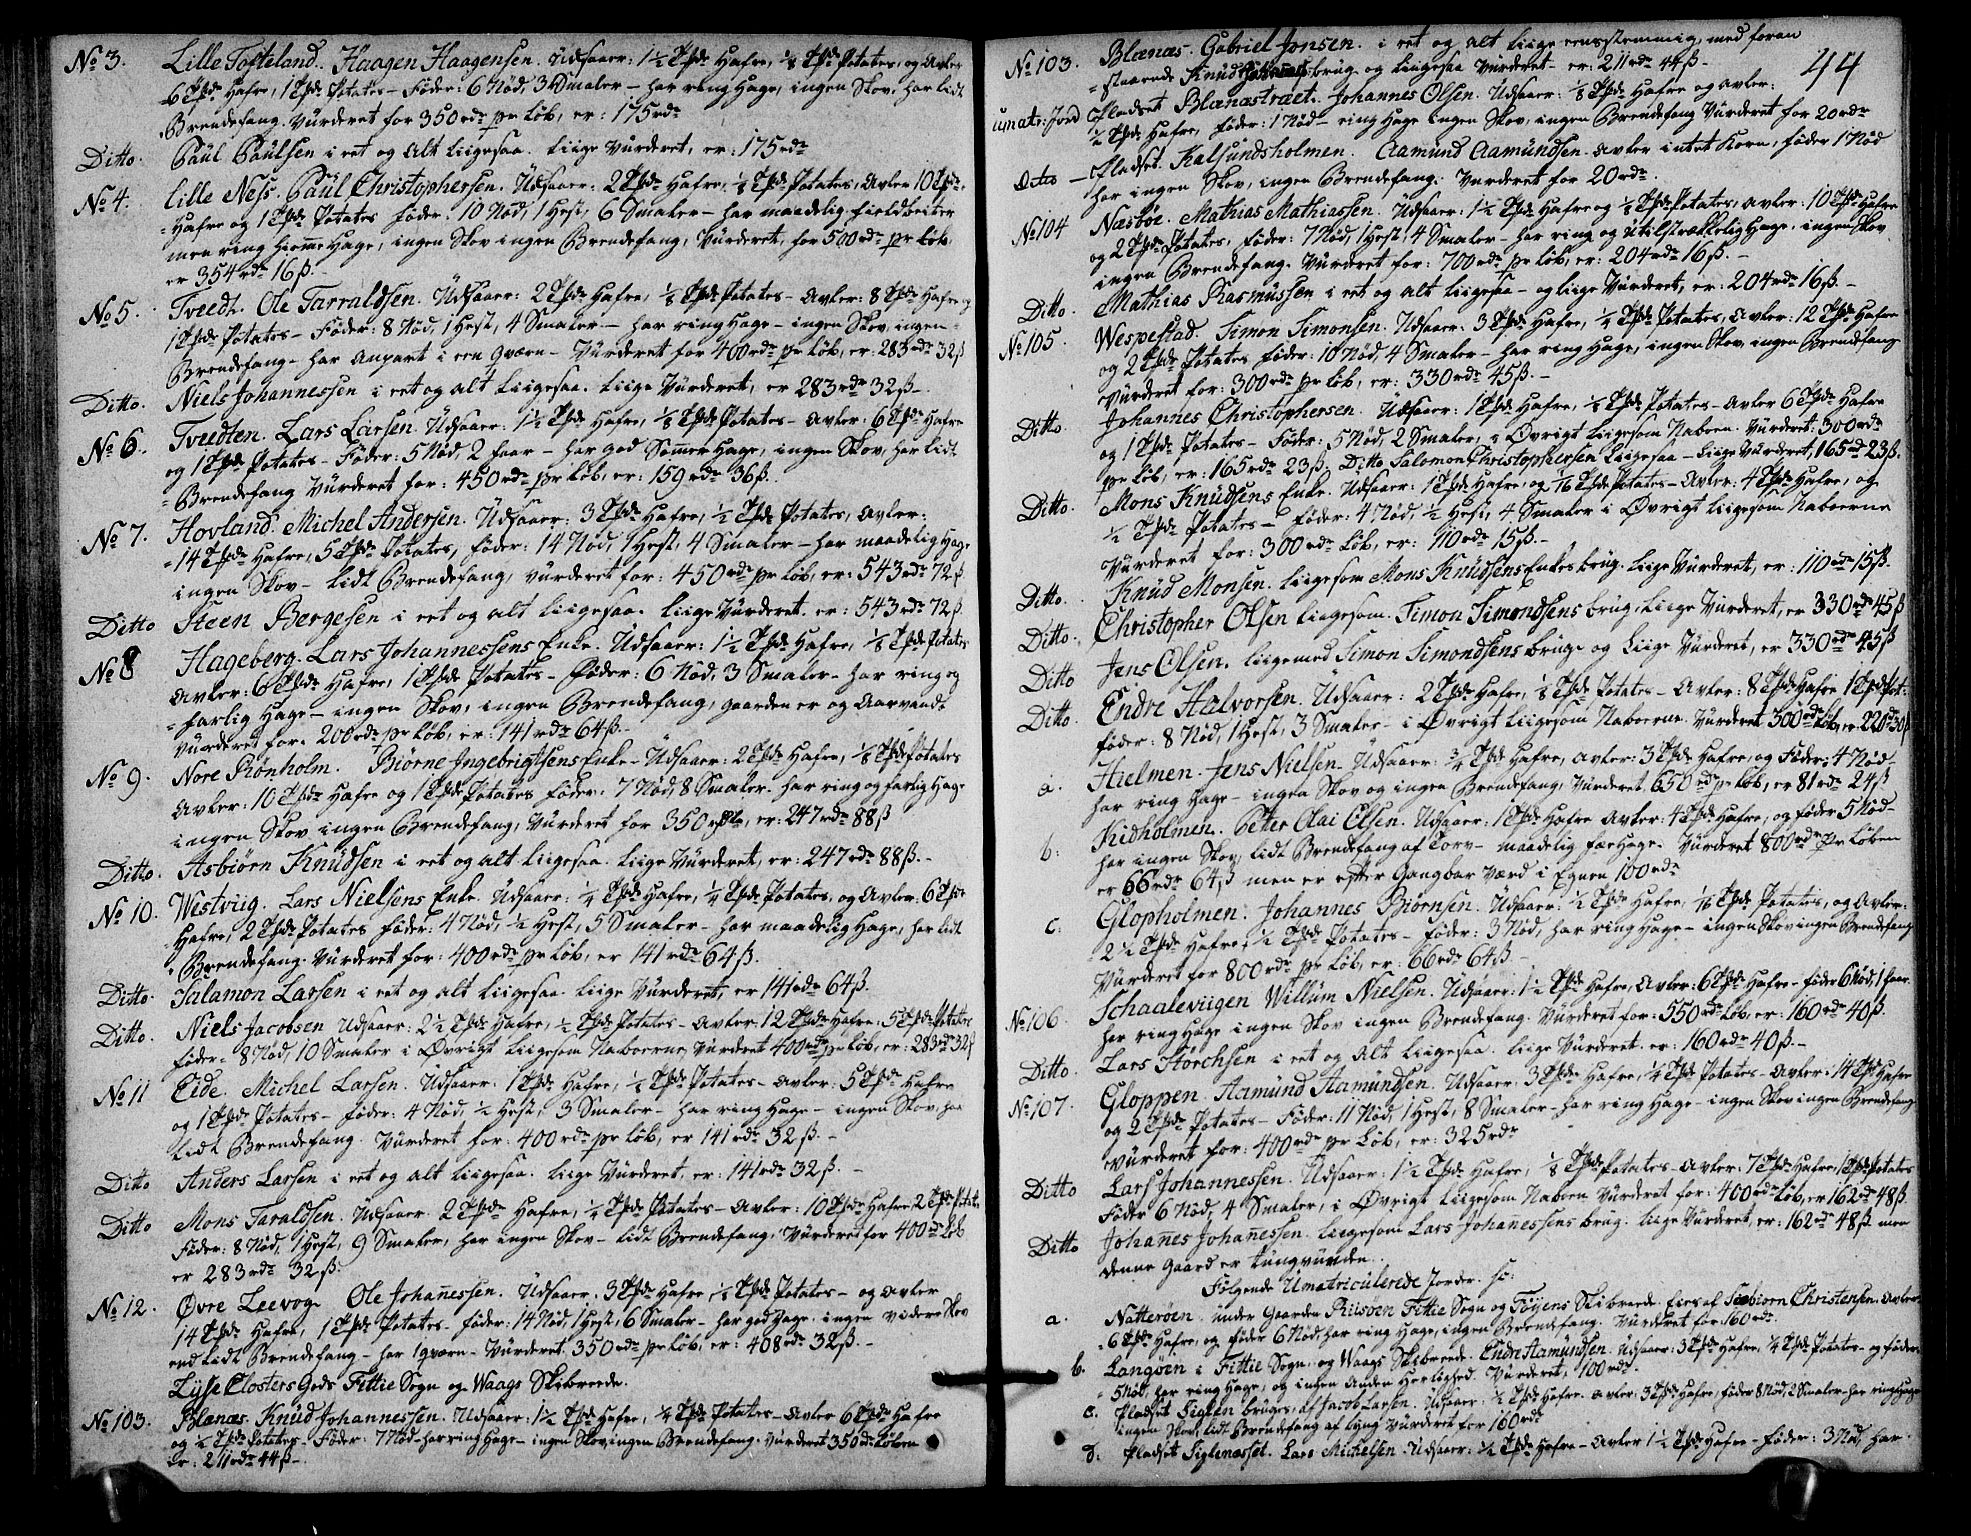 No 3. Lille Tofteland. Haagen Haagensen. Udsaaer: 1½ Tde Hafre, ⅛ Tde Potates, og Avler
6 Tde Hafre, 1 Tde Potates - Föder: 6 Nöd, 3 Smaler - har ring Hage, ingen Skov, har lidt
Brendefang. Vurderet for 350 rdr pr Löb, er: 175 rdr
Ditto. Paul Paulsen i eet og alt liigesaa. liige Vurderet, er: 175 rdr
No 4. Lille Ness. Paul Christophersen. Udsaaer: 2 Tde Hafre, ⅛ Tde Potates, Avler 10 Tde
Hafre og 1 Tde Potates föder: 10 Nöd, 1 Hest, 6 Smaler - har maadelig fieldbeiter
men ring hiemme Hage, ingen Skov ingen Brendefang, Vurderet, for 500 rdr pr Löb,
er 354 rdr 16 ß. -
No 5. Tvedt. Ole Tarraldsen. Udsaaer: 2 Tde Hafre, ⅛ Tde Potates - Avler: 8 Tde Hafre og
1 Tde Potates - Föder: 8 Nöd, 1 Hest, 4 Smaler - har ring Hage - ingen Skov, ingen
Brendefang - har Anpart i een Qværn - Vurderet for 400 rdr pr Löb, er: 283 rdr 32 ß
Ditto. Niels Johannessen i eet og alt liigesaa. liige Vurderet, er 283 rdr 32 ß. -
No 6. Tvedten. Lars Larsen. Udsaaer: 1½ Tde Hafre, ⅛ Tde Potates - Avler: 6 Tde Hafre
og 1 Tde Potates - Föder: 5 Nöd, 2 faar - har god Sommer Hage, ingen Skov, har lidt
Brendefang Vurderet for: 450 rdr pr Löb, er: 159 rdr 36 ß.
No 7. Hovland. Michel Andersen. Udsaaer: 3 Tde Hafre, ½ Tde Potates, Avler:
14 Tde Hafre, 5 Tde Potates, föder: 14 Nöd, 1 Hest, 4 Smaler - har maadelig Hage
ingen Skov - lidt Brendefang, vurderet for: 450 rdr pr Löb, er: 543 rdr 72 ß
Ditto Steen Bergesen i eet og alt liigesaa. liige Vurderet. er: 543 rdr 72 ß.
No 8 Hageberg. Lars Johannessens Enke. Udsaaer: 1½ Tde Hafre, ⅛ Tde Potates
Avler: 6 Tde Hafre, 1 Tde Potates - Föder: 6 Nöd, 3 Smaler - har ring og
farlig Hage - ingen Skov, ingen Brendefang, gaarden er og Aarvandt
Vurderet for. 200 rdr pr Löb, er: 141 rdr 64 ß. -
No 9. Nore Rönholm. Biörne Ingebrigtsens Enke - Udsaaer: 2 Tde Hafre, ⅛ Tde Potates
Avler: 10 Tde Hafre og 1 Tde Potates föder: 7 Nöd, 8 Smaler. har ring og farlig Hage
ingen Skov ingen Brendefang, Vurderet for 350 rdr, er: 247 rdr 88 ß
Ditto. Asbiörn Knudsen i eet og alt liigesaa. liige Vurderet, er: 247 rdr 88 ß. -
No 10. Westviig. Lars Nielsens Enke. Udsaaer: ¼ Tde Hafre, ¼ Tde Potates, og Avler: 6 Tde
Hafre, 2 Tde Potates föder: 4 Nöd, ½ Hest, 5 Smaler - har maadelig Hage, har lidt
Brendefang. Vurderet for: 400 rdr pr Löb, er 141 rdr 64 ß.
Ditto. Salamon Larsen i eet og alt liigesaa. liige Vurderet, er 141 rdr 64 ß.
Ditto. Niels Jacobsen Udsaaer: 2½ Tde Hafre, ½ Tde Potates - Avler: 12 Tde Hafre: 5 Tde Potates
föder - 8 Nöd, 10 Smaler i Øvrigt liigesom Naboerne, Vurderet 400 rdr pr Löb, er: 283 rdr 32 ß
No 11 Eide. Michel Larsen. Udsaaer: 1 Tde Hafre, ½ Tde Potates - Avler: 5 Tde Hafre
og 1 Tde Potates - föder: 4 Nöd, ½ Hest, 3 Smaler - har ring Hage - ingen Skov, har
lidt Brendefang. Vurderet for: 400 rdr pr Löb, er 141 rdr 32 ß. -
Ditto Anders Larsen i eet og alt liigesaa. liige Vurderet, er: 141 rdr 32 ß. -
Ditto Mons Taraldsen. Udsaaer. 2 Tde Hafre, ¼ Tde Potates - Avler: 10 Tde Hafre, 2 Tde Potates
Föder: 8 Nöd, 1 Hest, 9 Smaler, har ingen Skov - lidt Brendefang, Vurderet for 400 rdr Löb
er 283 rdr 32 ß.
No 12. Øvre Leevog. Ole Johannessen. Udsaaer. 3 Tde Hafre, ½ Tde Potates - og Avler
14 Tde Hafre, 1 Tde Potates - föder: 14 Nöd, 1 Hest, 6 Smaler - har god Hage. ingen videre Skov
end lidt Brendefang - har 1 qværn - Vurderet 350 rdr pr Löb, er: 408 rdr 32 ß. -
Lysse Closters Gods Fittie Sogn og Waags Skibrede.
No 103. Blænæs. Knud Johannessen. Udsaaer: 1½ Tde Hafre, ¼ Tde Potates - Avler 6 Tde Hafre
og ½ Tde Potates - Föder: 7 Nöd - har ring Hage - ingen Skov ingen Brendefang. Vurderet 350 rdr Löben
er: 211 rdr 44 ß. -
44
No 103. Blænæs. Gabriel Jonsen. i eet og alt liige eensstemmig, med foran
staaende Knud brug og liigesaa Vurderet - er: 211 rdr 44 ß -
umatr: Jord Pladset Blænæstræet. Johannes Olsen. Udsaaer: ⅛ Tde Hafre og Avler:
½ Tde Hafre, föder: 1 Nöd - ring Hage ingen Skov, ingen Brendefang Vurderet for 20 rdr
Ditto - Pladset. Kalsundsholmen. Aamund Aamundsen. Avler intet Korn, föder 1 Nöd
har ingen Skov, ingen Brendefang. Vurderet for 20 rdr.
No 104 Næsböe. Mathias Mathiassen. Udsaaer: 1½ Tde Hafre og ⅛ Tde Potates. Avler: 10 Tde Hafre
og 2 Tde Potates, föder: 7 Nöd, 1 Hest, 4 Smaler - har ring og utilstrækkelig Hage, ingen Skov
ingen Brendefang. Vurderet for: 700 rdr pr Löb, er: 204 rdr 16 ß. -
Ditto. Mathias Rasmussen i eet og alt liigesaa - og liige Vurderet, er: 204 rdr 16 ß. -
No 105. Wespestad. Simon Simonsen. Udsaaer: 3 Tde Hafre, ¼ Tde Potates, Avler: 12 Tde Hafre
og 2 Tde Potates föder: 10 Nöd, 4 Smaler - har ring Hage, ingen Skov ingen Brendefang
Vurderet for: 300 rdr pr Löb, er: 330 rdr 45 ß. -
Ditto. Johannes Christophersen. Udsaaer: 1 Tde Hafre, ⅛ Tde Potates - Avler 6 Tde Hafre
og 1 Tde Potates - Föder: 5 Nöd, 2 Smaler, i Øvrigt liigesom Naboen. Vurderet: 300 rdr
pr Löb, er: 165 rdr 23 ß. Ditto Salomon Christophersen liigesaa - liige Vurderet, 165 rdr 23 ß.
Ditto. Mons Knudsens Enke. Udsaaer: 1 Tde Hafre, og 1/16 Tde Potates - Avler: 4 Tde Hafre, og
½ Tde Potates - föder: 4 Nöd, ½ Hest, 4 Smaler i Øvrigt liigesom Naboerne
Vurderet for: 300 rdr Löb, er: 110 rdr 15 ß. -
Ditto. Knud Monsen. liigesom Mons Knudsens Enkes brug. liige Vurderet, er: 110 rdr 15 ß.
Ditto. Christopher Olsen liigesom. Simon Simonsens brug. liige Vurderet, er 330 rdr 45 ß
Ditto Jens Olsen. liige med Simon Simondsens bruge og liige Vurderet, er 330 rdr 45 ß
Ditto. Endre Halvorsen. Udsaaer: 2 Tde Hafre, ⅛ Tde Potates - Avler: 8 Tde Hafre 1 Tde Pot:
föder: 8 Nöd, 1 Hest, 3 Smaler - i Øvrigt liigesom Naboerne. Vurderet 300 rdr Löb, er: 220 rdr 30 ß
a. Hielmen. Jens Nielsen. Udsaaer: ¾ Tde Hafre, Avler: 3 Tde Hafre, og Föder: 4 Nöd
har ring Hage - ingen Skov og ingen Brendefang, Vurderet 650 rdr pr Löb, er 81 rdr 24 ß
b. Kidholmen. Peter Olai Olsen. Udsaaer: 1 Tde Hafre Avler: 4 Tde Hafre, og föder 5 Nöd -
har ingen Skov, lidt Brendefang af Torv - maadelig fæe Hage - Vurderet 800 rdr pr Löben
er 66 rdr 64 ß men er efter Gangbar Værd i Egnen 100 rdr
c. Glopholmen. Johannes Biörnsen. Udsaaer: ½ Tde Hafre, 1/16 Tde Potates, og Avler:
2½ Tde Hafre, ½ Tde Potates - föder: 3 Nöd, har ring Hage - ingen Skov ingen Brendefang
Vurderet for 800 rdr pr Löb, er: 66 rdr 64 ß. -
No 106 Schaaleviigen Willum Nielsen. Udsaaer: 1½ Tde Hafre, Avler: 6 Tde Hafre - föder 6 Nöd, 1 faar.
har ring Hage ingen Skov ingen Brendefang. Vurderet for: 550 rdr Löb, er: 160 rdr 40 ß.
Ditto. Lars Störchsen i eet og alt liigesaa. liige Vurderet. er: 160 rdr 40 ß. -
No 107. Gloppen. Aamund Aamundsen. Udsaaer: 3 Tde Hafre, ¼ Tde Potates - Avler: 14 Tde Hafre
og 2 Tde Potates - Föder: 11 Nöd, 1 Hest, 8 Smaler - har ring Hage - ingen Skov ingen Brendefang
Vurderet for: 400 rdr pr Löb, er: 325 rdr
Ditto Lars Johannessen. Udsaaer: 1½ Tde Hafre, ⅛ Tde Potates - Avler: 7 Tde Hafre, 1 Tde Potates
Föder 6 Nöd, 4 Smaler, i Øvrigt liigesom Naboen Vurderet for: 400 rdr Löb, er 162 rdr 48 ß.
Ditto Johannes Johannessen. liigesom Lars Johannessens brug. liige Vurderet, er: 162 rdr 48 ß men
denne Gaard er tungvunden.
Fölgende Umatriculerede Jorder. sc:
a. Natteröen. under Gaarden Riilsöen Fittie Sogn og Föyens Skibrede. Eies af Torbiorn Christensen. Avler
6 Tde Hafre, og föder 6 Nöd, har ring Hage, ingen Brendefang. Vurderet for 160 rdr.
b. Langöen i Fittie Sogn og Waags Skibrede. Endre Aamundsen. Udsaaer: 3 Tde Hafre, ¼ Tde Potates - og föder
5 Nöd, har ring Hage, og ingen Anden Herlighed. Vurderet, 100 rdr.
c. Pladset Siglen bruges af Jacob Larsen. Udsaaer: ½ Tde Hafre. Avler: 3 Tde Hafre, föder 8 Nöd, 2 Smaler - har ring Hage
ingen Skov, lidt Brendefang af Lyng Vurderet for 160 rdr
d: Pladset Siglenæsset. Lars Michelsen. Udsaaer: ½ Tde Hafre - Avler 1½ Tde Hafre - föder: 3 Nöd, har